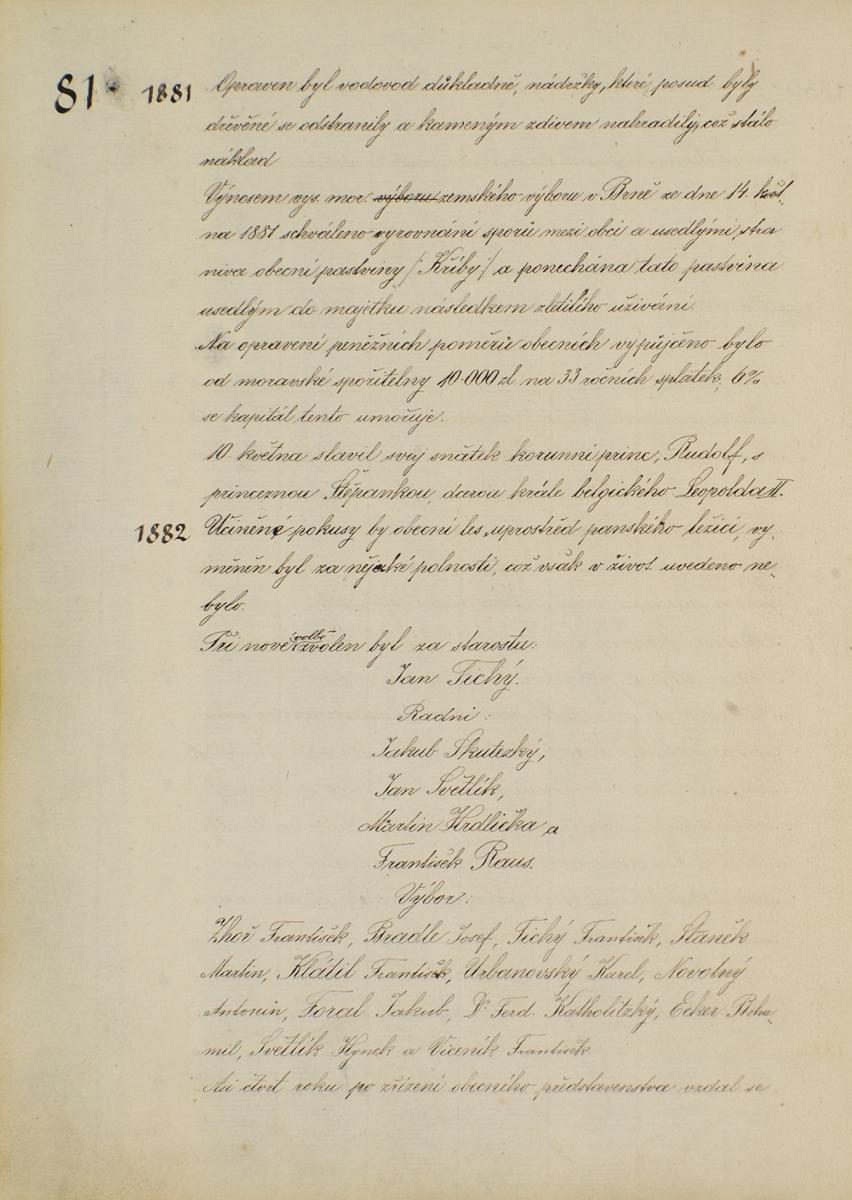 81 1881 Opraven byl vodovod důkladně, nádržky, které posud byly
dřevěné se odstranily a kameným zdivem nahradily, což stálo
náklad
Výnosem vys. mor. výboru zemského výboru v Brně ze dne 14. květ-
na 1881 schváleno vyrovnání sporů mezi obcí a usedlými, stra
niva obecní pastviny /: Křiby :/ a ponechána tato pastvina
usedlým do majetku následkem zletilého užívání.
Na opravení peněžních poměrů obecních vypůjčeno bylo
od moravské spořitelny 10.000 zl. na 33 ročních splátek, 6%
se kapitál tento umořuje.
10. května slavil svůj sňatek korunní princ, Rudolf, s
princeznou Štěpankou, dcerou krále belgického Leopolda II.
1882 Učiněné pokusy by obecní les, uprostřed panského ležící, vy-
měněn byl za nějaké polnosti, což však v život uvedeno ne-
bylo.
Při nové volbě zvolen byl za starostu:
Jan Tichý.
Radní:
Jakub Skutezký,
Jan Světlík,
Martin Hrdlička a
František Raus.
Výbor:
Zhoř František, Bradle Josef, Tichý František, Staněk
Martin, Klátil František, Urbanovský Karel, Novotný
Antonín, Foral Jakub, Dr. Ferd. Katholitzký, Ecker Bohu-
mil, Světlík Hynek a Viceník František.
Asi čtvrt roku po zřízení obecního představenstva vzdal se